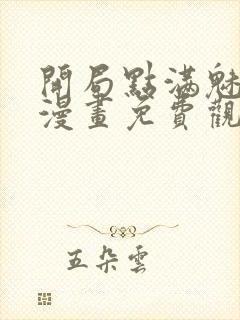 開局點滿魅
漫畫免費觀
五朵雲